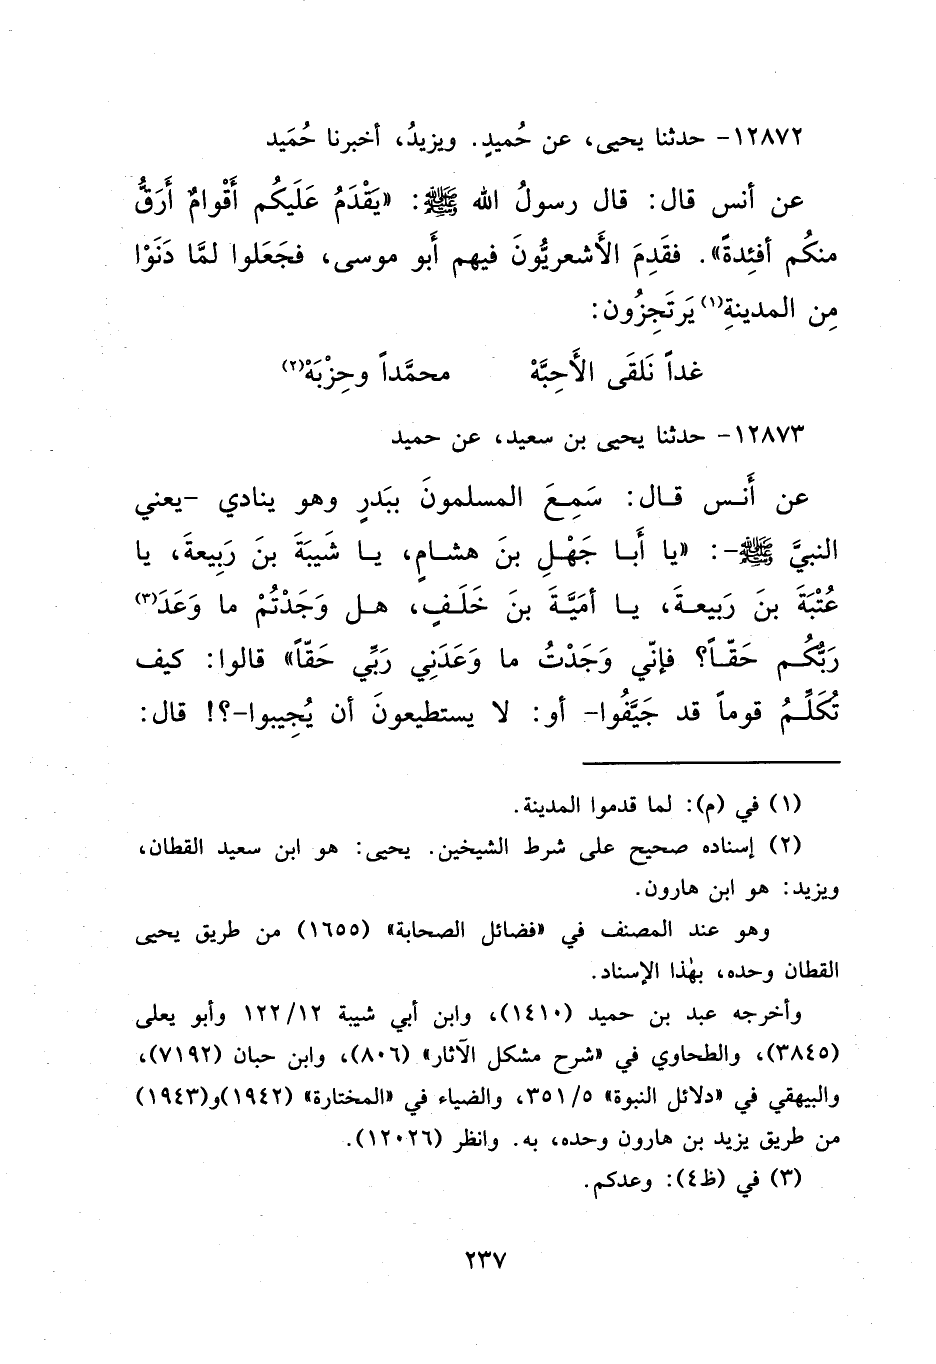 ١٢٨٧٢- حدثنا يحيى، عن حُميدٍ. ويزيدُ، أخبرنا حُمَيد
عن أنس قال: قال رسولُ الله ﷺ: «يَقْدَمُ عَلَيكُم أَقْوامٌ أَرَقُّ
منكُم أفئِدةً». فقَدِمَ الأَشعريُّونَ فيهم أَبو موسى، فجَعَلوا لمَّا دَنَوْا
مِن المدينةِ(١) يَرتَجِزُون:
غداً نَلقَى الأَحِبَّهْ محمَّداً وحِزْبَهْ(٢)
١٢٨٧٣- حدثنا يحيى بن سعيد، عن حميد
عن أَنس قال: سَمِعَ المسلمونَ ببَدرٍ وهو ينادي -يعني
النبيَّ ﷺ-: «يا أَبا جَهْلِ بنَ هشامٍ، يا شَيبَةَ بنَ رَبِيعةَ، يا
عُتْبَةَ بنَ رَبيعةَ، يا أمَيَّةَ بنَ خَلَفٍ، هل وَجَدْتُمْ ما وَعَدَ(٣)
رَبُّكُم حَقّاً؟ فإنّي وَجَدْتُ ما وَعَدَنِي رَبِّي حَقّاً» قالوا: كيف
تُكَلِّمُ قوماً قد جَيَّفُوا- أو: لا يستطيعونَ أن يُجِيبوا-؟! قال:
(١) في (م): لما قدموا المدينة.
(٢) إسناده صحيح على شرط الشيخين. يحيى: هو ابن سعيد القطان،
ويزيد: هو ابن هارون.
وهو عند المصنف في «فضائل الصحابة» (١٦٥٥) من طريق يحيى
القطان وحده، بهٰذا الإسناد.
وأخرجه عبد بن حميد (١٤١٠)، وابن أبي شيبة ١٢/ ١٢٢ وأبو يعلى
(٣٨٤٥)، والطحاوي في «شرح مشكل الآثار» (٨٠٦)، وابن حبان (٧١٩٢)،
والبيهقي في «دلائل النبوة» ٥/ ٣٥١، والضياء في «المختارة» (١٩٤٢)و(١٩٤٣)
من طريق يزيد بن هارون وحده، به. وانظر (١٢٠٢٦).
(٣) في (ظ٤): وعدكم.
٢٣٧